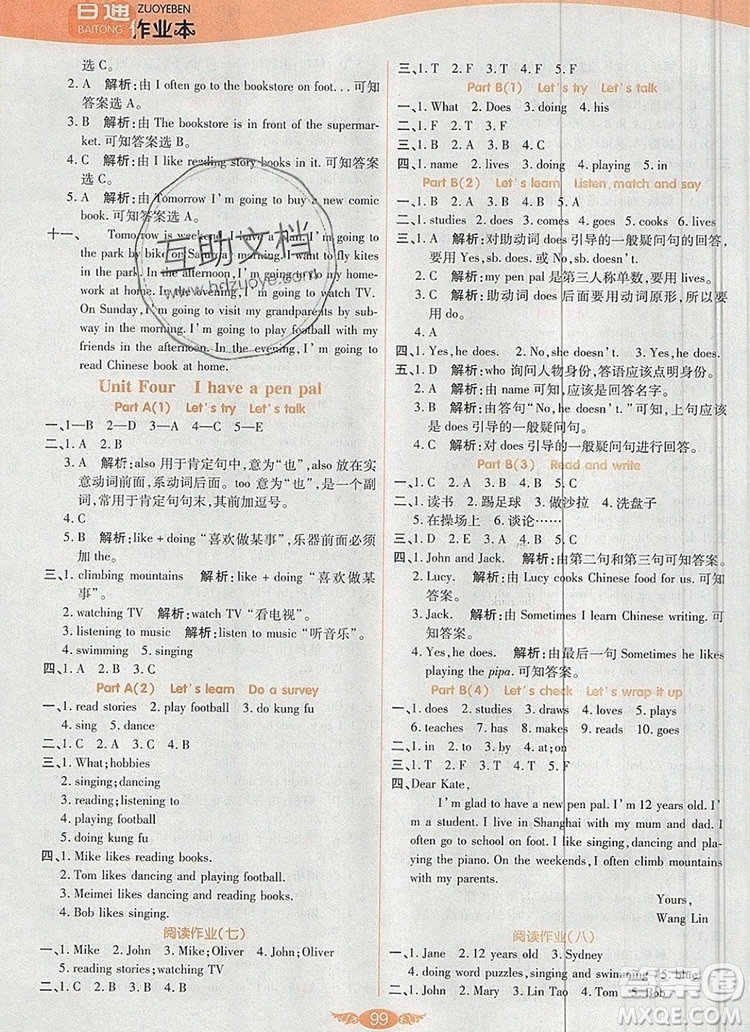 百通 ZUOYEBEN
BAITONG 作业本
选 C。
2. A 解析:由 I often go to the bookstore on foot... 可知
答案选 A。
3. B 解析:由 The bookstore is in front of the supermar-
ket. 可知答案选 B。
4. C 解析:由 I like reading story books in it. 可知答
案选 C。
5. A 解析:由 Tomorrow I'm going to buy a new comic
book. 可知答案选 A。
十一、 Tomorrow is weekend. I have a plan. I'm going to
the park by bike on Saturday morning. I want to fly kites
in the park. In the afternoon, I'm going to do my home-
work at home. In the evening, I'm going to watch TV.
On Sunday, I'm going to visit my grandparents by sub-
way in the morning. I'm going to play football with my
friends in the afternoon. In the evening, I'm going to
read Chinese book at home.
Unit Four I have a pen pal
Part A(1) Let's try Let's talk
一、1—B 2—A 3—D 4—C 5—E
二、1. A 2. B
3. A 解析:also 用于肯定句中,意为“也”,also 放在实
意动词前面,系动词后面。too 意为“也”,是一个副
词,常用于肯定句句末,其前加逗号。
4. C
5. B 解析:like+doing“喜欢做某事”,乐器前面必须
加 the。
三、1. climbing mountains 解析:like+doing“喜欢做某
事”。
2. watching TV 解析:watch TV“看电视”。
3. listening to music 解析:listen to music“听音乐”。
4. swimming 5. singing
四、1. A 2. B 3. C
Part A(2) Let's learn Do a survey
一、1. read stories 2. play football 3. do kung fu
4. sing 5. dance
二、1. C 2. A 3. C 4. B
三、1. What;hobbies
2. singing;dancing
3. reading;listening to
4. playing football
5. doing kung fu
四、1. Mike likes reading books.
2. Tom likes dancing and playing football.
3. Meimei likes playing football and dancing.
4. Bob likes singing.
阅读作业(七)
一、1. Mike 2. John 3. Mike;Oliver 4. John;Oliver
5. reading stories;watching TV
二、1. B 2. A 3. B 4. B
三、1. T 2. F 3. T 4. F 5. F
Part B(1) Let's try Let's talk
一、1. What 2. Does 3. doing 4. his
二、1. F 2. T 3. F 4. F
三、1. A 2. B 3. B 4. C
四、1. name 2. lives 3. doing 4. playing 5. in
Part B(2) Let's learn Listen, match and say
一、1. D 2. C 3. B 4. A
二、1. studies 2. does 3. goes 4. cooks 5. lives
三、1. A 解析:对助动词 does 引导的一般疑问句的回答,
要用 Yes, sb. does. 或 No, sb. doesn't.
2. A 解析:my pen pal 是第三人称单数,要用 lives。
3. B 解析:助动词 does 后面要用动词原形,所以要
用 go。
4. A
四、1. Yes, he does. 2. No, she doesn't.
五、1. D 解析:who 询问人物身份,答语应该点明身份。
2. B 解析:由 name 可知,应该是回答名字。
3. C 解析:由答句“No, he doesn't.”可知,上句应该
是 does 引导的一般疑问句。
4. A 解析:对 does 引导的一般疑问句进行回答。
Part B(3) Read and write
一、1. A 2. B 3. B 4. A
二、1. 读书 2. 踢足球 3. 做沙拉 4. 洗盘子
5. 在操场上 6. 谈论……
三、1. D 2. E 3. A 4. B 5. C
四、1. John and Jack. 解析:由第二句和第三句可知答案。
2. Lucy. 解析:由 Lucy cooks Chinese food for us. 可
知答案。
3. Jack. 解析:由 Sometimes I learn Chinese writing. 可
知答案。
4. John. 解析:由最后一句 Sometimes he likes
playing the pipa. 可知答案。
Part B(4) Let's check Let's wrap it up
一、1. does 2. studies 3. goes 4. plays 5. watches
6. teaches 7. has 8. makes 9. reads 10. does
二、1. on 2. to 3. by 4. at;on
三、1. F 2. T 3. T 4. F
四、Dear Kate,
I'm glad to have a new pen pal. I'm 12 years old. I'm
a student. I live in Shanghai with my mum and dad. I
often go to school on foot. I like singing, dancing and play-
ing the piano. On the weekends, I often climb mountains
with my parents.
Yours,
Wang Lin
阅读作业(八)
一、1. Jane 2. 12 years old 3. Sydney
4. doing word puzzles, singing and swimming 5. blue
二、1. John 2. Mary 3. Lin Tao 4. Tom 5. Bob
99
互助文档
www.hdzuoye.com
答案圈
MXQE.COM